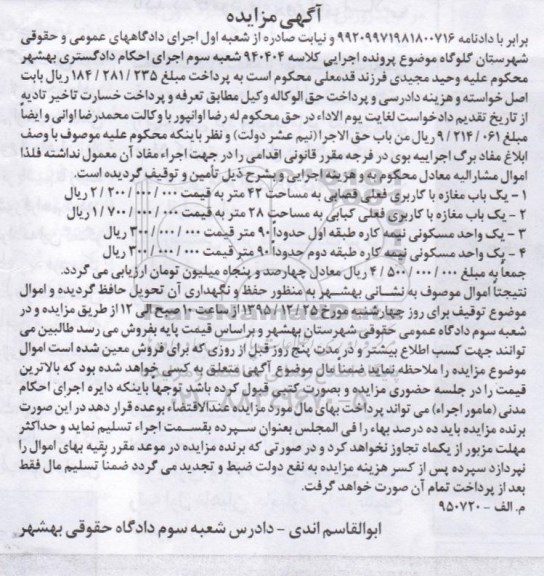 آگهی مزایده
برابر با دادنامه ۹۹۲۰۹۹۷۱۹۸۱۸۰۰۷۱۶ و نیابت صادره از شعبه اول اجرای دادگاههای عمومی و حقوقی
شهرستان گلوگاه موضوع پرونده اجرایی کلاسه ۹۴۰۴۰۴ شعبه سوم اجرای احکام دادگستری بهشهر
محکوم علیه وحید مجیدی فرزند قدمعلی محکوم است به پرداخت مبلغ ۲۳۵ / ۲۸۱ / ۱۸۴ ریال بابت
اصل خواسته و هزینه دادرسی و پرداخت حق الوکاله وکیل مطابق تعرفه و پرداخت خسارت تاخیر تادیه
از تاریخ تقدیم دادخواست لغایت یوم الاداء در حق محکوم له رضا اوانپور با وکالت محمدرضا اوانی و ایضاً
مبلغ ۰۶۱ / ۲۱۴ / ۹ ریال من باب حق الاجرا (نیم عشر دولت) و نظر باینکه محکوم علیه موصوف با وصف
ابلاغ مفاد برگ اجراییه بوی در فرجه مقرر قانونی اقدامی را در جهت اجراء مفاد آن معمول نداشته فلذا
اموال مشارالیه معادل محکوم به و هزینه اجرایی و بشرح ذیل تأمین و توقیف گردیده است.
۱ - یک باب مغازه با کاربری فعلی قصابی به مساحت ۴۲ متر به قیمت ۰۰۰ / ۰۰۰ / ۲۰۰ / ۲ ریال
۲ - یک باب مغازه با کاربری فعلی کبابی به مساحت ۲۸ متر به قیمت ۰۰۰ / ۰۰۰ / ۷۰۰ / ۱ ریال
۳ - یک واحد مسکونی نیمه کاره طبقه اول حدوداً ۹۰ متر قیمت ۰۰۰ / ۰۰۰ / ۳۰۰ ریال
۴ - یک واحد مسکونی نیمه کاره طبقه دوم حدوداً ۹۰ متر قیمت ۰۰۰ / ۰۰۰ / ۳۰۰ ریال
جمعاً به مبلغ ۰۰۰ / ۰۰۰ / ۵۰۰ / ۴ ریال معادل چهارصد و پنجاه میلیون تومان ارزیابی می گردد.
نتیجتاً اموال موصوف به نشانی بهشهر به منظور حفظ و نگهداری آن تحویل حافظ گردیده و اموال
موضوع توقیف برای روز چهارشنبه مورخ ۱۳۹۵/۱۲/۲۵ از ساعت ۱۰ صبح الی ۱۲ از طریق مزایده و در
شعبه سوم دادگاه عمومی حقوقی شهرستان بهشهر و براساس قیمت پایه بفروش می رسد طالبین می
توانند جهت کسب اطلاع بیشتر و در مدت پنج روز قبل از روزی که برای فروش معین شده است اموال
موضوع مزایده را ملاحظه نماید ضمناً مال موضوع آگهی متعلق به کسی خواهد شده بود که بالاترین
قیمت را در جلسه حضوری مزایده و بصورت کتبی قبول کرده باشد توجها باینکه دایره اجرای احکام
مدنی (مامور اجراء) می تواند پرداخت بهای مال مورد مزایده عندالاقتضاء بوعده قرار دهد در این صورت
برنده مزایده باید ده درصد بهاء را فی المجلس بعنوان سپرده بقسمت اجراء تسلیم نماید و حداکثر
مهلت مزبور از یکماه تجاوز نخواهد کرد و در صورتی که برنده مزایده در موعد مقرر بقیه بهای اموال را
نپردازد سپرده پس از کسر هزینه مزایده به نفع دولت ضبط و تجدید می گردد ضمناً تسلیم مال فقط
بعد از پرداخت تمام آن صورت خواهد گرفت.
م. الف - ۹۵۰۷۲۰
ابوالقاسم اندی - دادرس شعبه سوم دادگاه حقوقی بهشهر